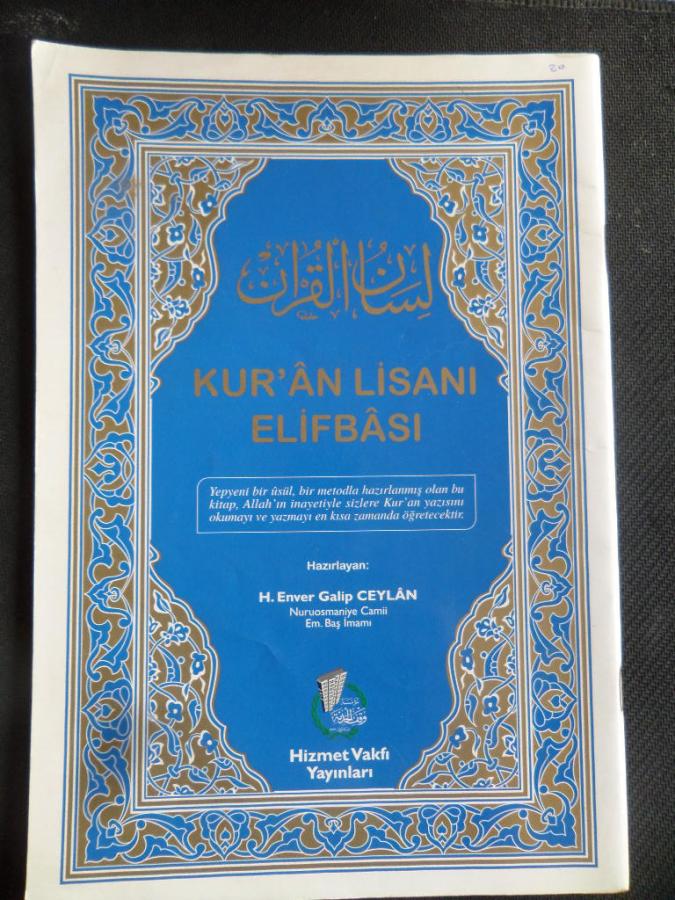 20
لِسَانُ الْقُرْآنِ
KUR'ÂN LİSANI
ELİFBÂSI
Yepyeni bir ûsül, bir metodla hazırlanmış olan bu
kitap, Allah'ın inayetiyle sizlere Kur'an yazısını
okumayı ve yazmayı en kısa zamanda öğretecektir.
Hazırlayan:
H. Enver Galip CEYLÂN
Nuruosmaniye Camii
Em. Baş İmamı
Hizmet Vakfı
Yayınları